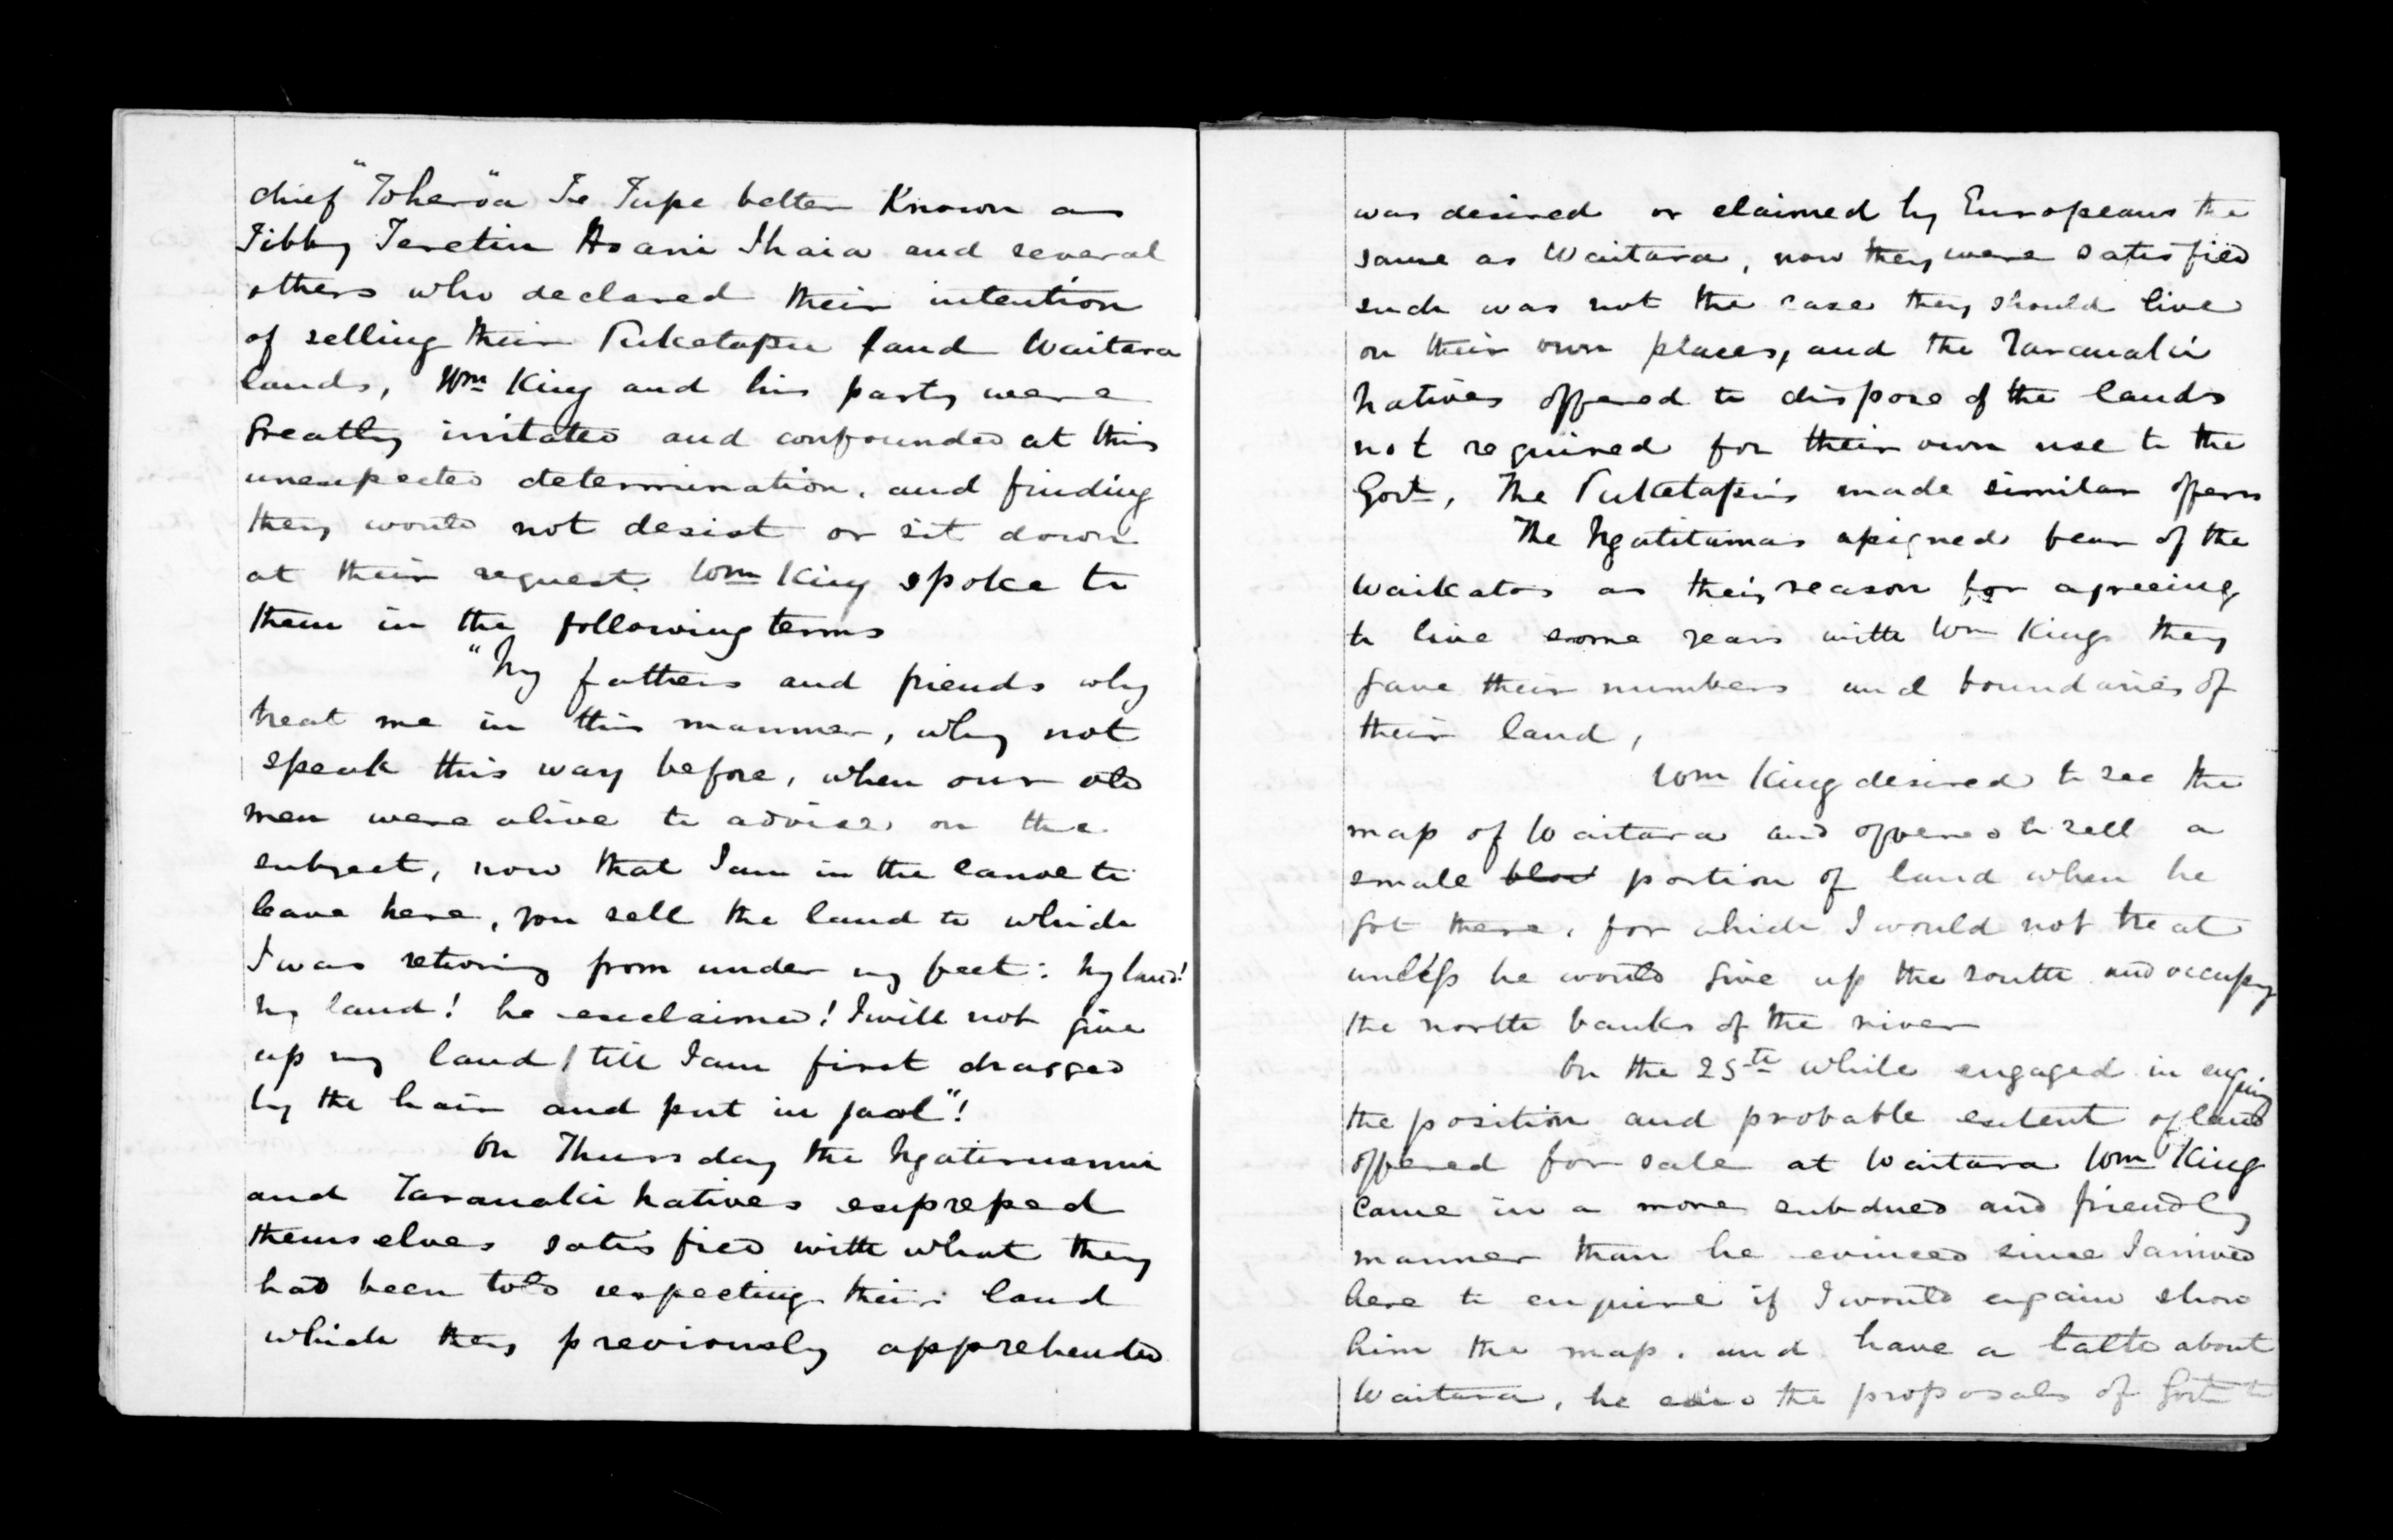 chief "Toheroa" Te Tupe better Known as
Tibby Teretiu Hoani Ihaia and several
others who declared their intention
of selling their Puketapu land Waitara
lands, Wm King and his party were
greatly irritated and confounded at this
unexpected determination, and finding
they would not desist or sit down
at their request. Wm King spoke to
them in the following terms
"My fathers and friends why
treat me in this manner, why not
speak this way before, when our old
men were alive to advise on the
subject, now that I am in the canoe to
leave here, you sell the land to which
I was retiring from under my feet: My land!
My land! he exclaimed! I will not give
up my land till I am first dragged
by the hair and put in jaol"!
On Thursday the Ngatiruanui
and Taranaki natives expressed
themselves satisfied with what they
had been told respecting their land
which they previously apprehended
was desired or claimed by Europeans the
same as Waitara, now they were satisfied
such was not the case they should live
on their own places, and the Taranaki
Natives offered to dispose of the lands
not required for their own use to the
Govt, The Puketapu's made similar offers
The Ngatitamas assigned fear of the
Waikatos as their reason for agreeing
to live some years with Wm King they
gave their numbers and boundaries of
their land,
Wm King desired to see the
map of Waitara and offered to sell a
small portion of land when he
got there, for which I would not treat
unless he would give up the south and occupy
the north banks of the river
On the 25th while engaged in
the position and probable extent of land
offered for sale at Waitara Wm King
came in a more subdued and friendly
manner than he evinced since I arrived
here to enquire if I would again show
him the map, and have a talk about
Waitara, he said the proposals of Govt to